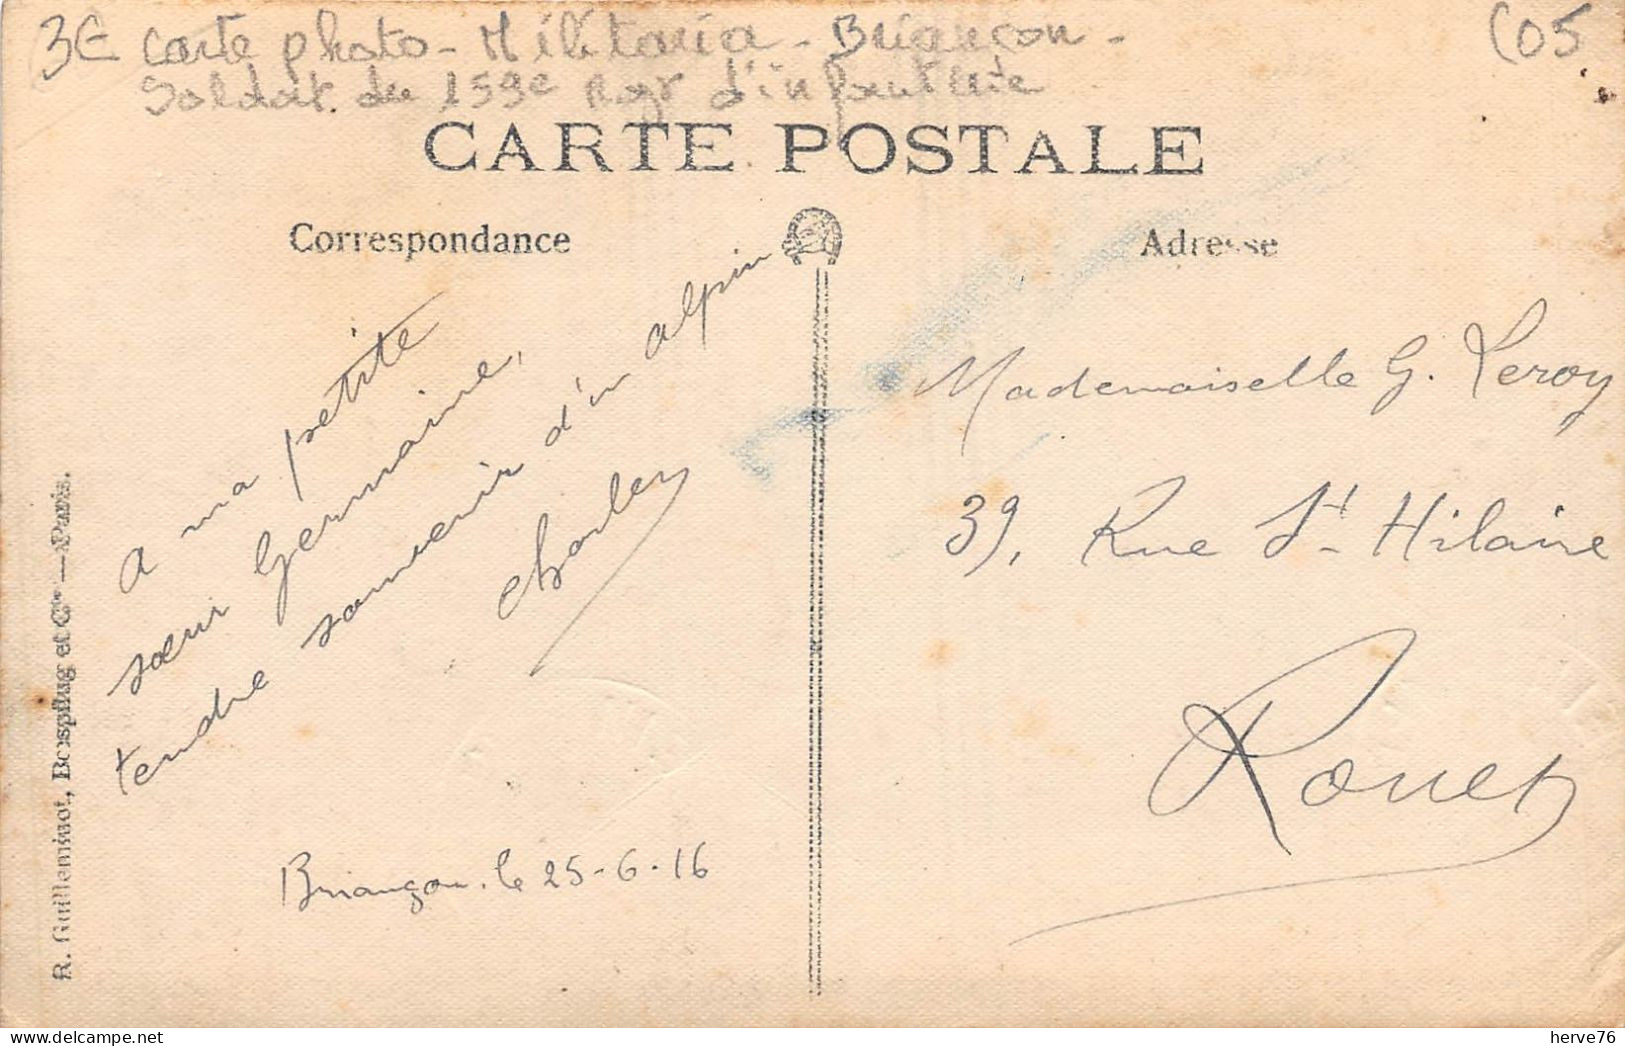 3€ carte photo - Militaria - Briançon -
C05
Soldat du 159e Rgt d'infanterie
CARTE POSTALE
Correspondance
Adresse
A ma petite
sœur Germaine,
tendre souvenir d'un alpin
Charles
Briançon. le 25-6-16
Mademoiselle G. Leroy
39, Rue St Hilaire
Rouen
R. Guilleminot, Bœspflug et Cie — Paris.
herve76